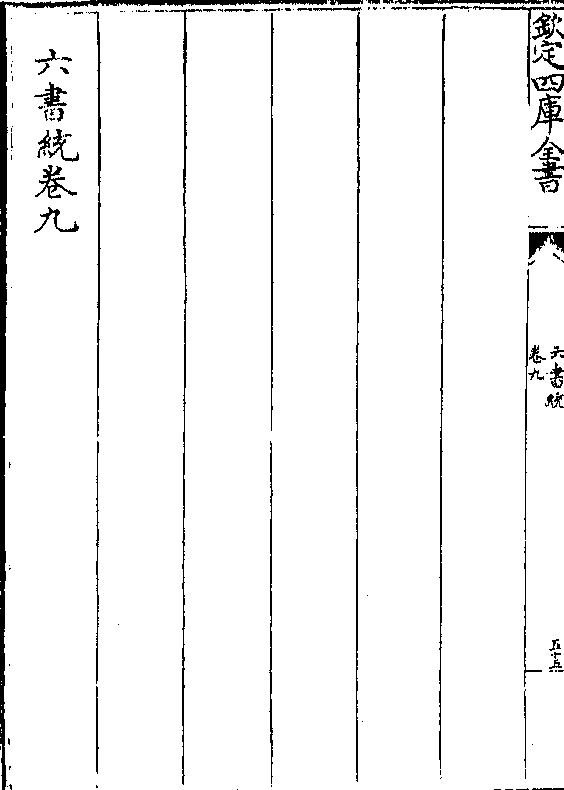 欽定四庫全書
六書統
卷九
五十五
六書統卷九